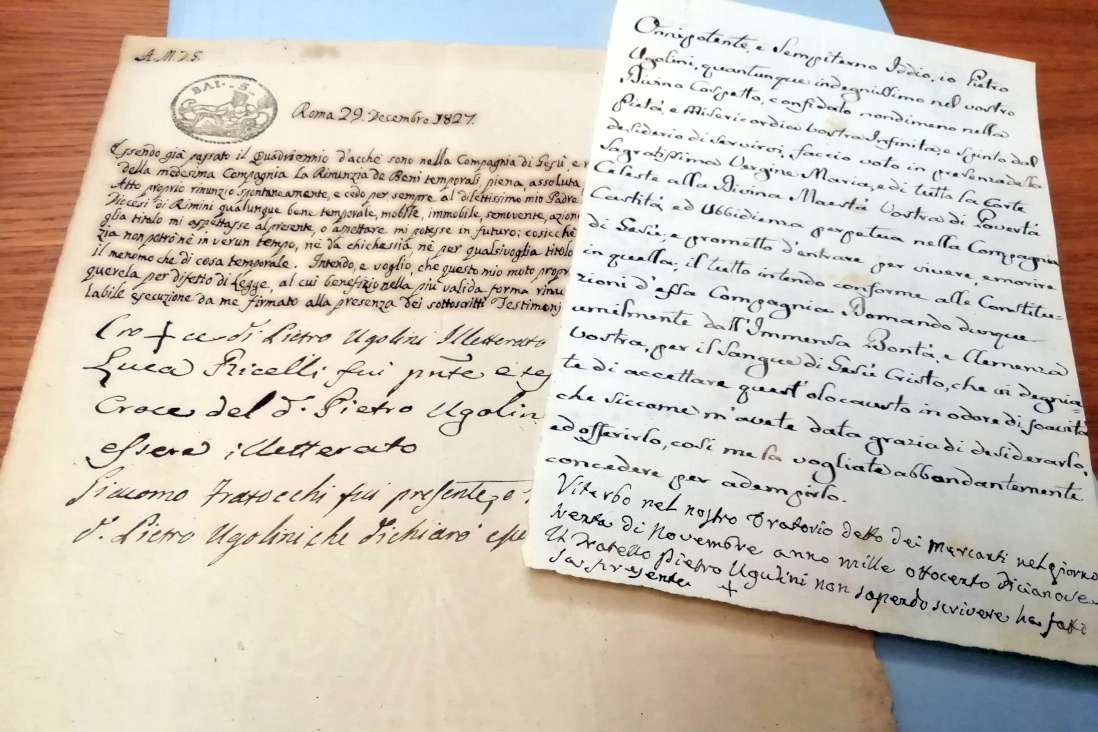 A.M.D.G.
BAI. 5.
Roma 29. Decembre 1827.
Essendo già passato il Quadriennio d'acchè sono nella Compagnia di Gesù e
della medesima Compagnia la Rinunzia de Beni temporali piena, assoluta
Atto proprio rinunzio spontaneamente, e cedo per sempre al dilettissimo mio Padre
Diocesi di Rimini qualunque bene temporale, mobile, immobile, semovente, azion
glia titolo mi aspettasse al presente, o aspettare mi potesse in futuro; cosicchè
zia non potrò nè in verun tempo, nè da chichessia, nè per qualsivoglia titolo
il menomo che di cosa temporale. Intendo, e voglio, che questo mio moto propri
querela per difetto di Legge, al cui benefizio nella più valida forma rinu
labile esecuzione da me firmato alla presenza dei sottoscritti Testimonj
Cro + ce di Pietro Ugolini Illetterato
Luca Ricelli fui pñte e seg
Croce del d. Pietro Ugolin
essere illetterato
Giacomo Fratocchi fui presente, e
d. Pietro Ugolini, che dichiarò esse
Onnipotente, e Sempiterno Iddio, io Pietro
Ugolini, quantunque indegnissimo nel vostro
Divino Cospetto, confidato nondimeno nella
Pietà, e Misericordia vostra Infinita, e spinto dal
desiderio di servirvi, faccio voto in presenza della
Sagratissima Vergine Maria, e di tutta la Corte
Celeste alla Divina Maestà Vostra di Povertà
Castità, ed Ubbidienza perpetua nella Compagnia
di Gesù, e prometto d'entrare per vivere, e morire
in quella; il tutto intendo conforme alle Constitu-
zioni d'essa Compagnia. Domando dunque
umilmente dall'Immensa Bontà, e Clemenza
Vostra, per il Sangue di Gesù Cristo, che vi degnia-
te di accettare quest'olocausto in odore di soavità
che siccome m'avete data grazia di desiderarlo,
ed offerirlo, così me la vogliate abbondantemente
concedere per adempirlo.
Viterbo nel nostro Oratorio detto dei Mercanti nel giorno
venta di Novembre anno mille ottocento dicianove
Il Fratello Pietro Ugulini non sapendo scrivere ha fatto
la presente +